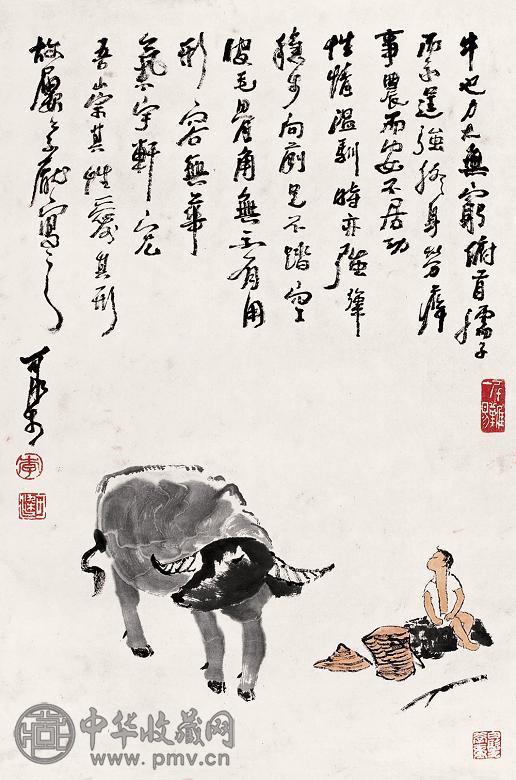 牛也力大無窮俯首孺子
而不逞強終身勞瘁
事農而安不居功
性情溫馴時亦強犟
穩步向前足不踏空
皮毛骨角無不有用
形容無華
氣宇軒宏
吾崇其性愛其形
故屢屢不厭寫之
可染
李
中华收藏网
www.pmv.cn